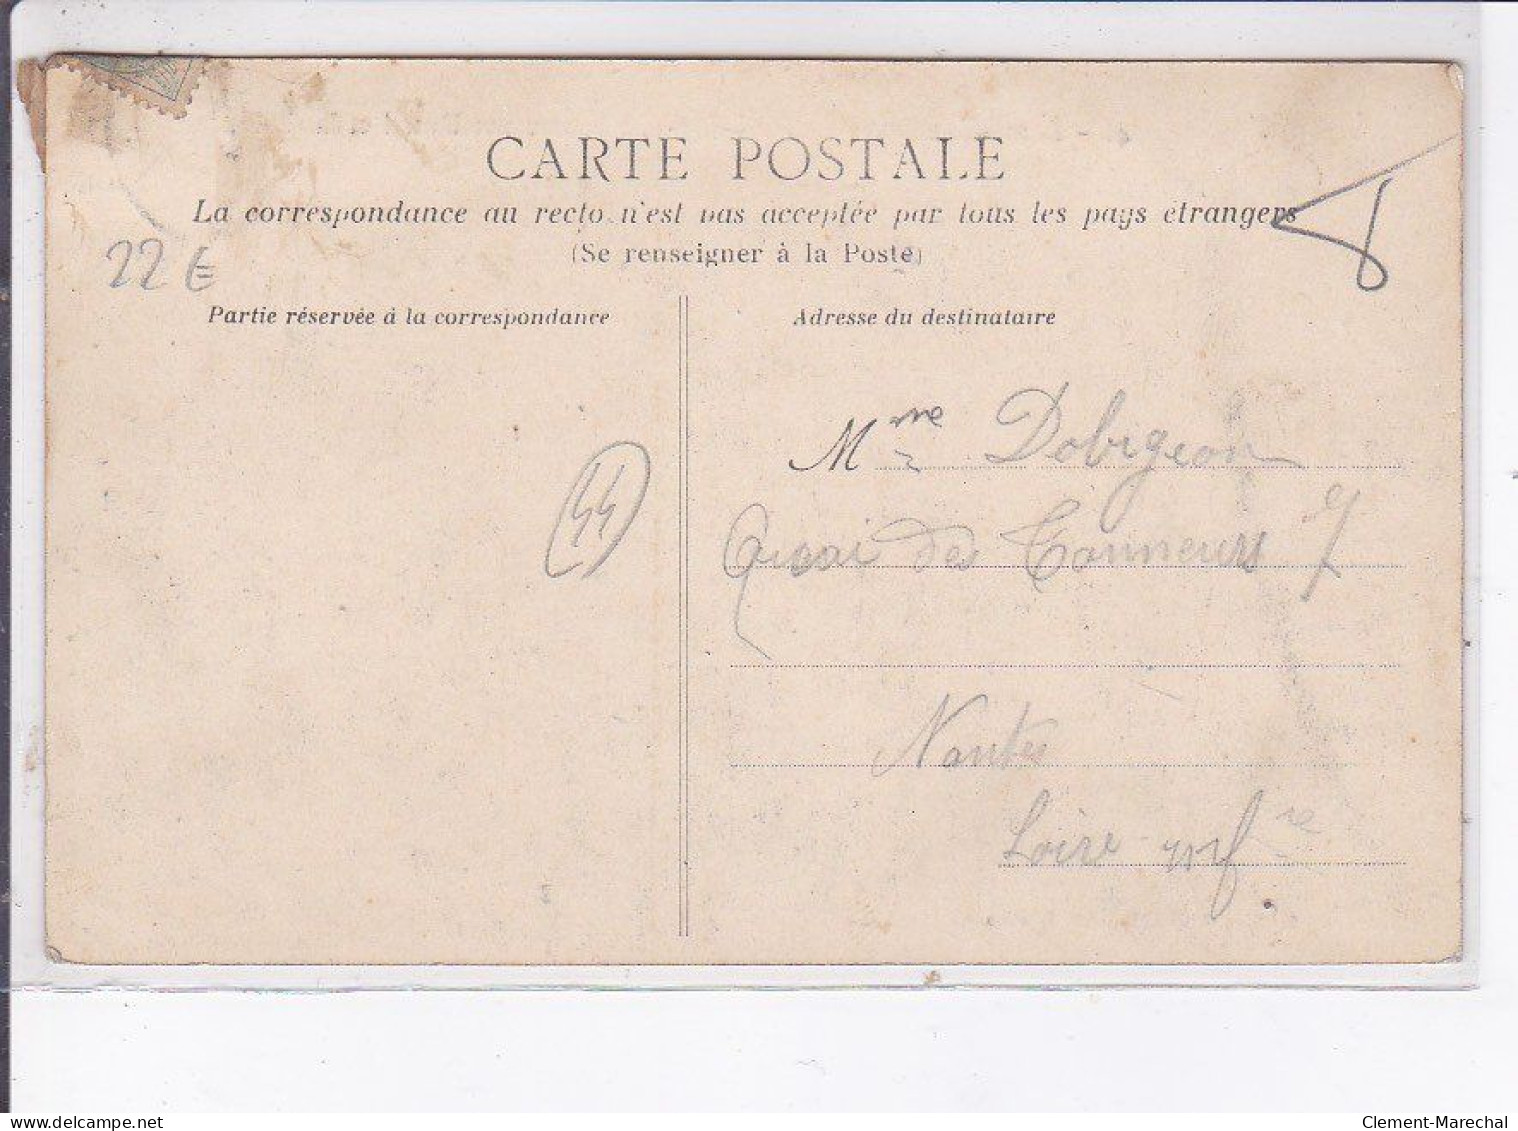 CARTE POSTALE
La correspondance au recto n'est pas acceptée par tous les pays étrangers
(Se renseigner à la Poste)
22 €
Partie réservée à la correspondance
Adresse du destinataire
Mme Dobigeon
44
Quai des Tanneurs 7
Nantes
Loire infre
delcampe.net
Clement-Marechal